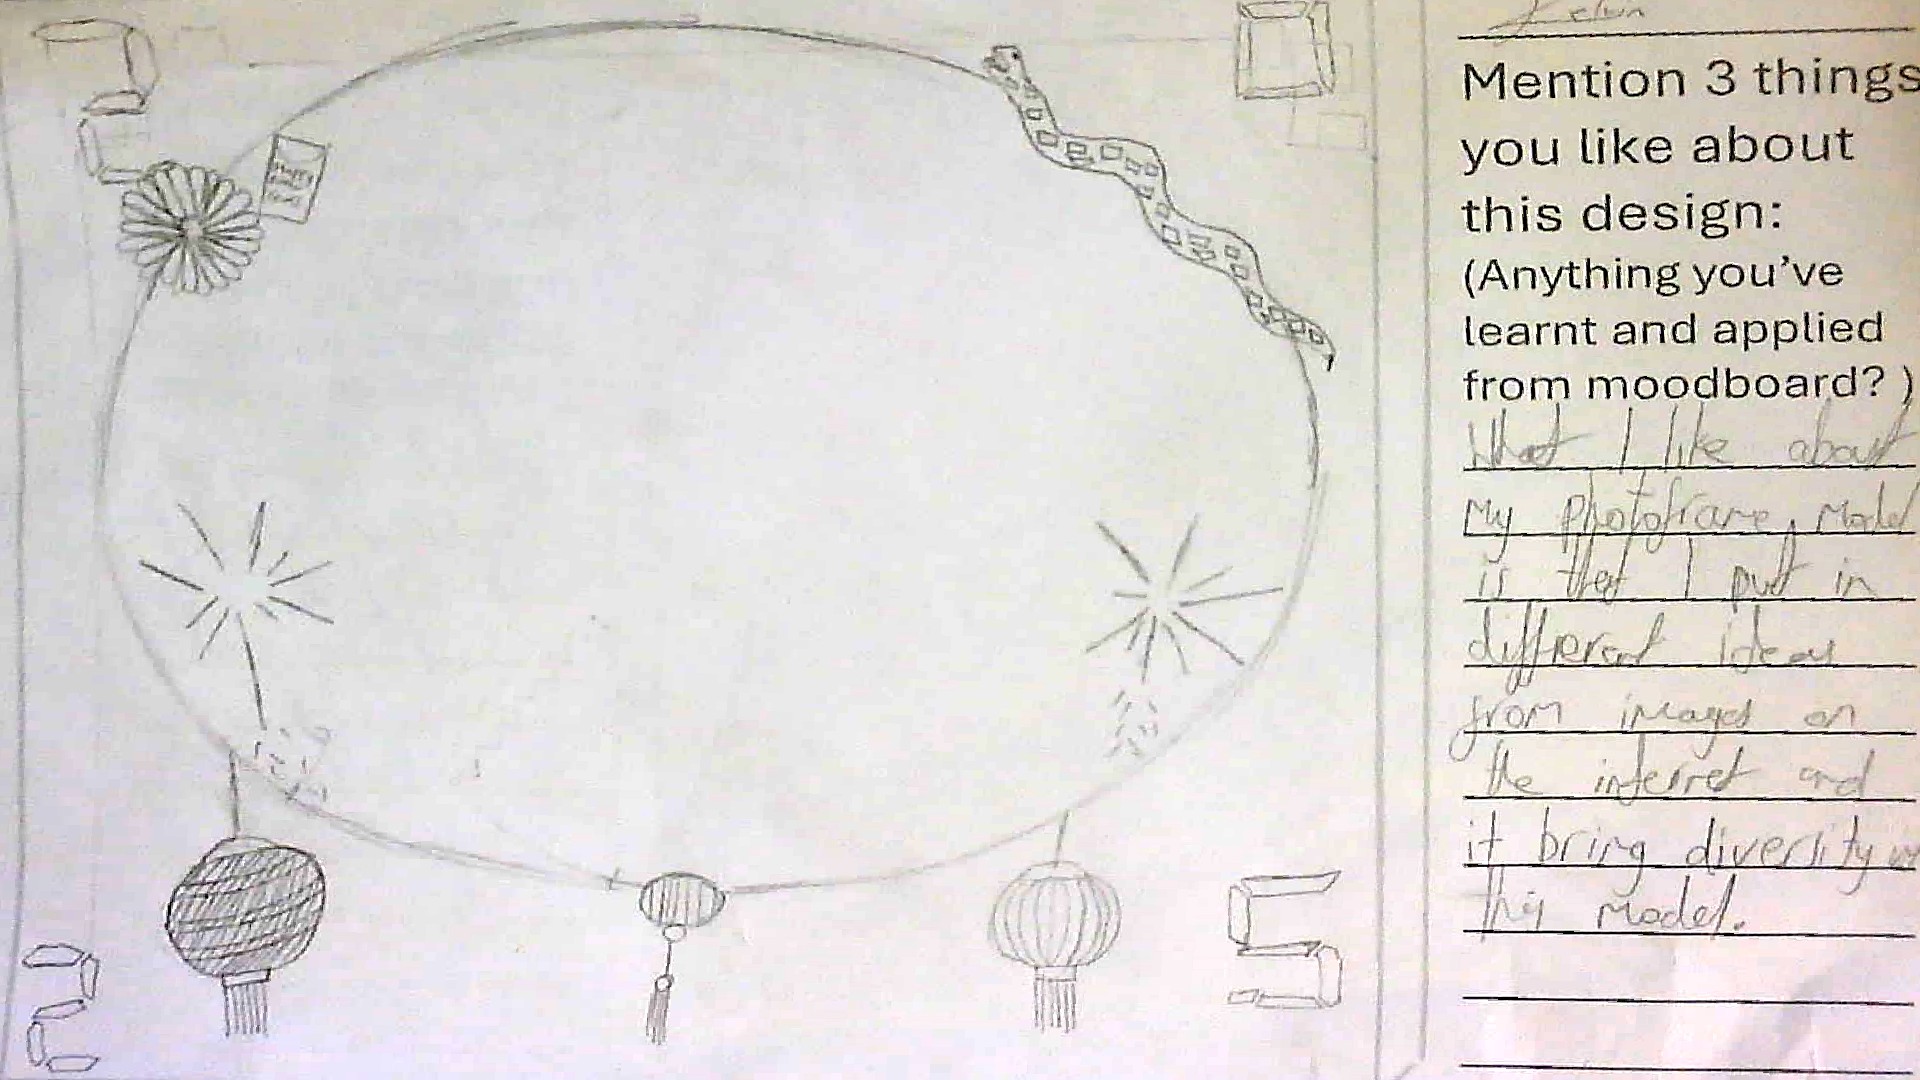 2
0
2
5
Kelvin
Mention 3 things
you like about
this design:
(Anything you've
learnt and applied
from moodboard? )
What I like about
my photoframe model
is that I put in
different ideas
from images on
the internet and
it bring diversity
this model.